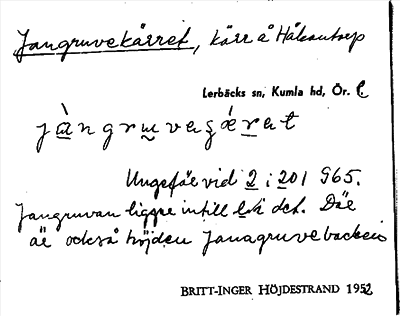 Jangruvekärret, kärr å Hålsautorp
Lerbäcks sn, Kumla hd, Ör. l.
Ungefär vid 2 i 201 965.
Jangruvan ligger intill det. Där
är också höjden Janagruvebacken
BRITT-INGER HÖJDESTRAND 1952